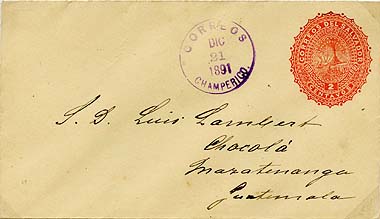 CORREOS
DIC
21
1891
CHAMPERICO.
CORREOS DEL SALVADOR
2
S. D. Luis Lambert
Chocolá
Mazatenango
Guatemala